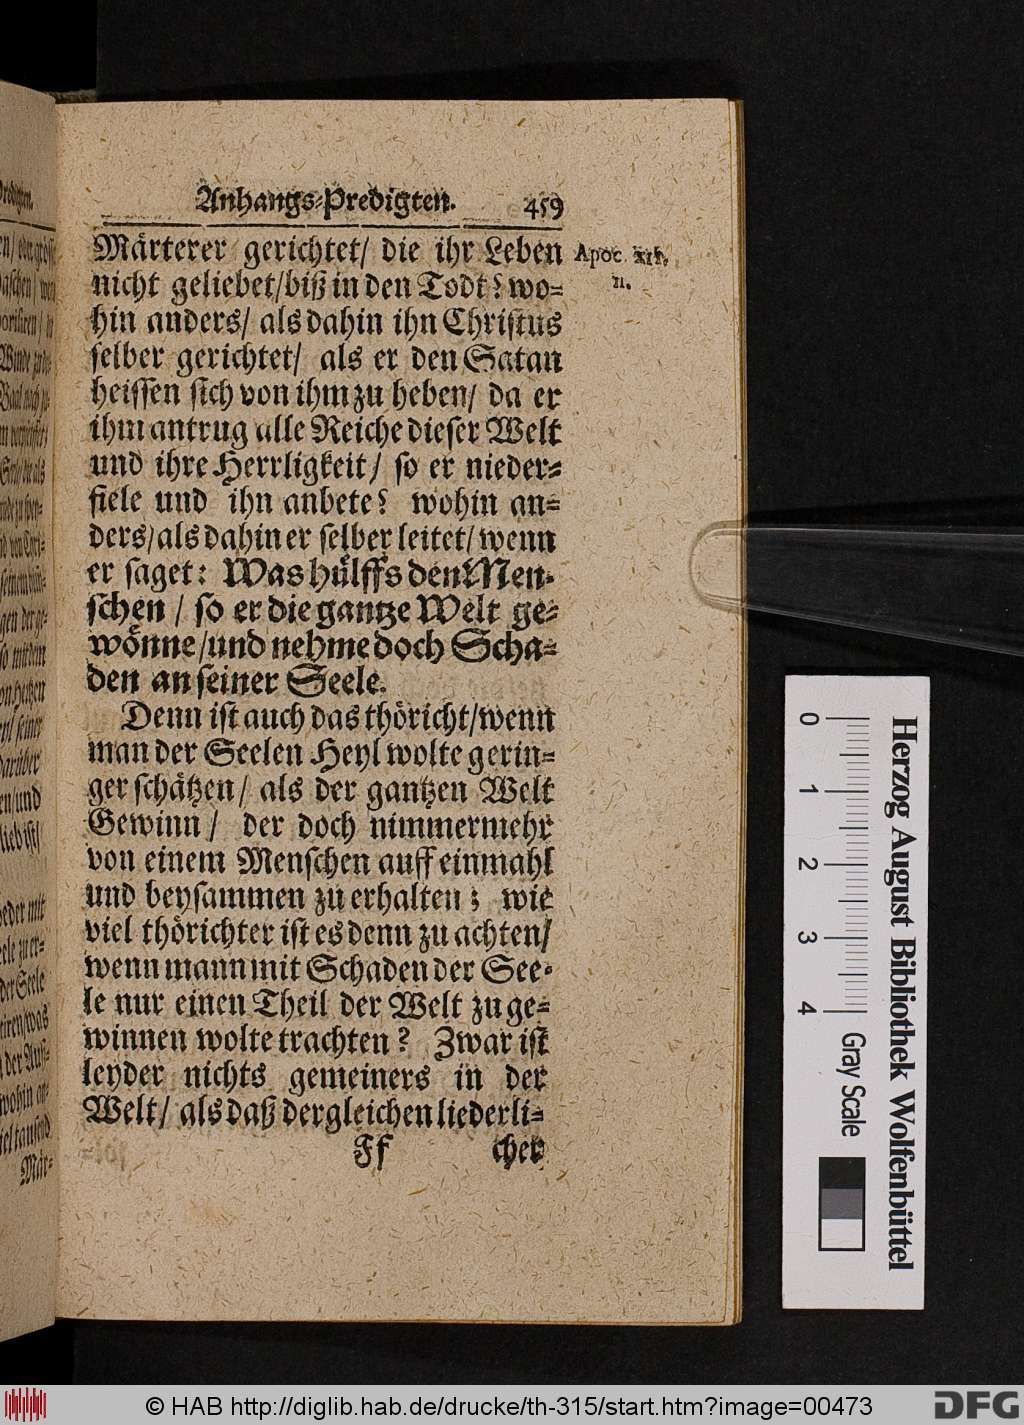 Anhangs-Predigten. 459
Märterer gerichtet/ die ihr Leben
nicht geliebet/biß in den Todt? wo-
hin anders/ als dahin ihn Christus
selber gerichtet/ als er den Satan
heissen sich von ihm zu heben/ da er
ihm antrug alle Reiche dieser Welt
und ihre Herrligkeit/ so er nieder-
fiele und ihn anbete? wohin an-
ders/als dahin er selber leitet/wenn
er saget: Was hülffs den Men-
schen / so er die gantze Welt ge-
wönne/und nehme doch Scha-
den an seiner Seele.
Denn ist auch das thöricht/wenn
man der Seelen Heyl wolte gerin-
ger schätzen/ als der gantzen Welt
Gewinn/ der doch nimmermehr
von einem Menschen auff einmahl
und beysammen zu erhalten; wie
viel thörichter ist es denn zu achten/
wenn mann mit Schaden der See-
le nur einen Theil der Welt zu ge-
winnen wolte trachten? Zwar ist
leyder nichts gemeiners in der
Welt/ als daß dergleichen liederli-
Ff cher
Apoc. XII.
11.
0 1 2 3 4 Gray Scale
Herzog August Bibliothek Wolfenbüttel
© HAB http://diglib.hab.de/drucke/th-315/start.htm?image=00473
DFG